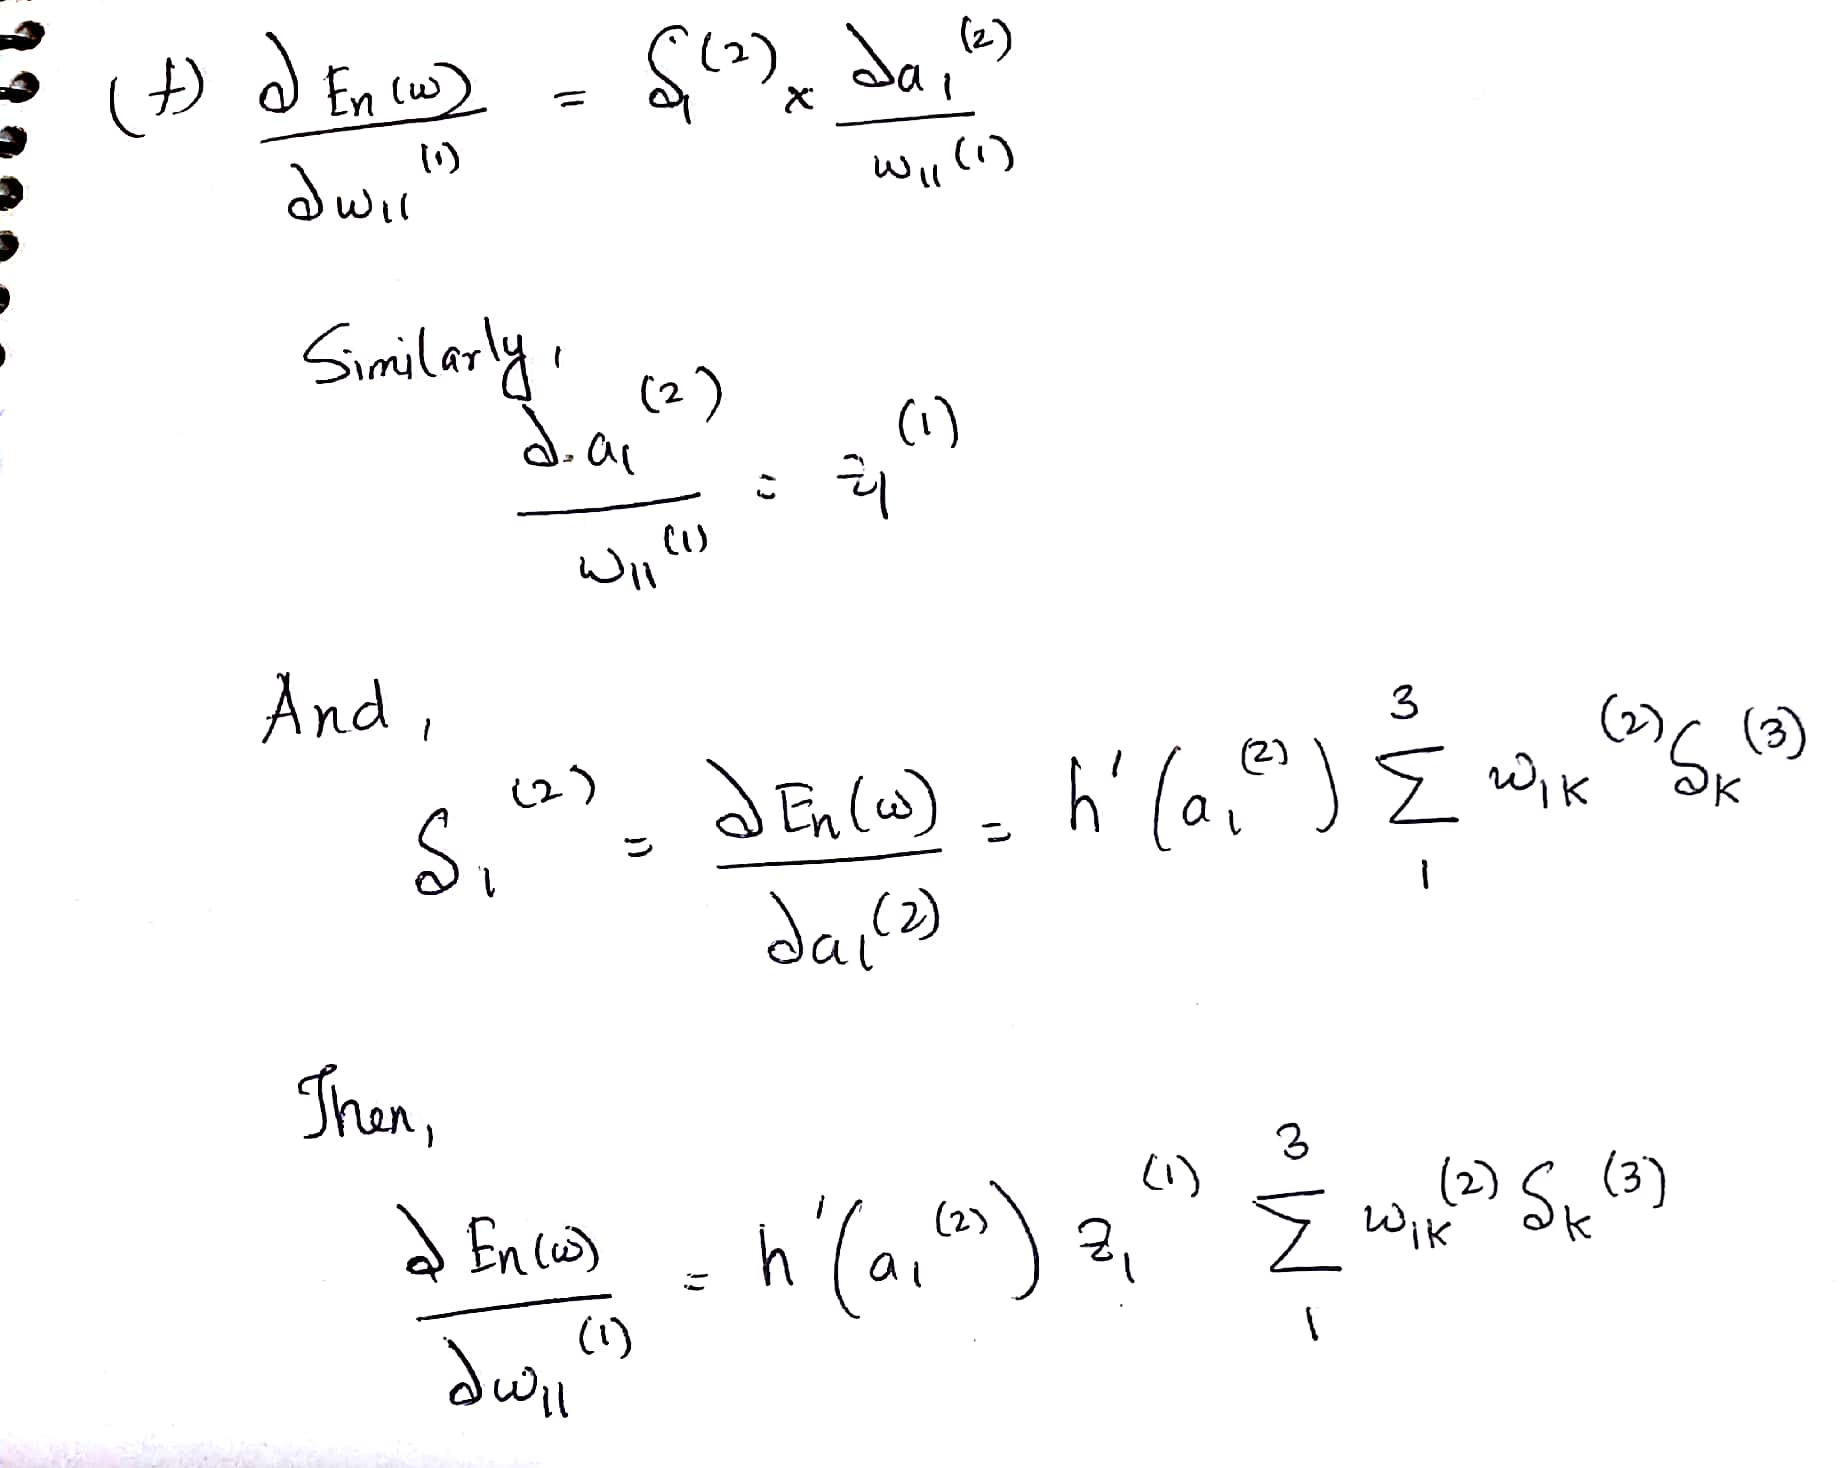 (f) ∂En(w)/∂w11^(1) = δ1^(2) × ∂a1^(2)/w11^(1)
Similarly,
∂a1^(2)/w11^(1) = z1^(1)
And,
δ1^(2) = ∂En(w)/∂a1^(2) = h'(a1^(2)) Σ_1^3 w1K^(2) δK^(3)
Then,
∂En(w)/∂w11^(1) = h'(a1^(2)) z1^(1) Σ_1^3 w1K^(2) δK^(3)